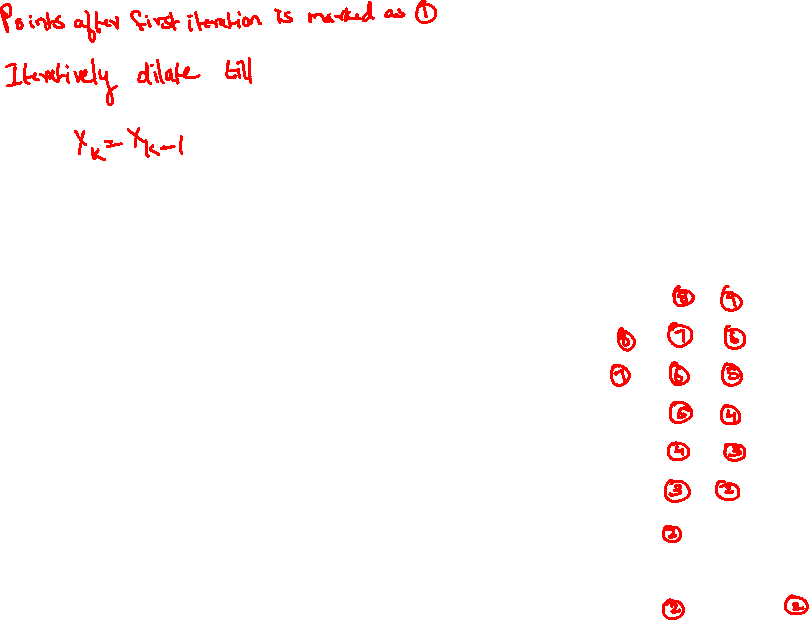 Points after first iteration is marked as ①
Iteratively dilate till
X_k = X_k-1
⑧ ⑦
⑧ ⑦ ⑥
⑦ ⑥ ⑤
④
④ ③
③ ②
②
② ②